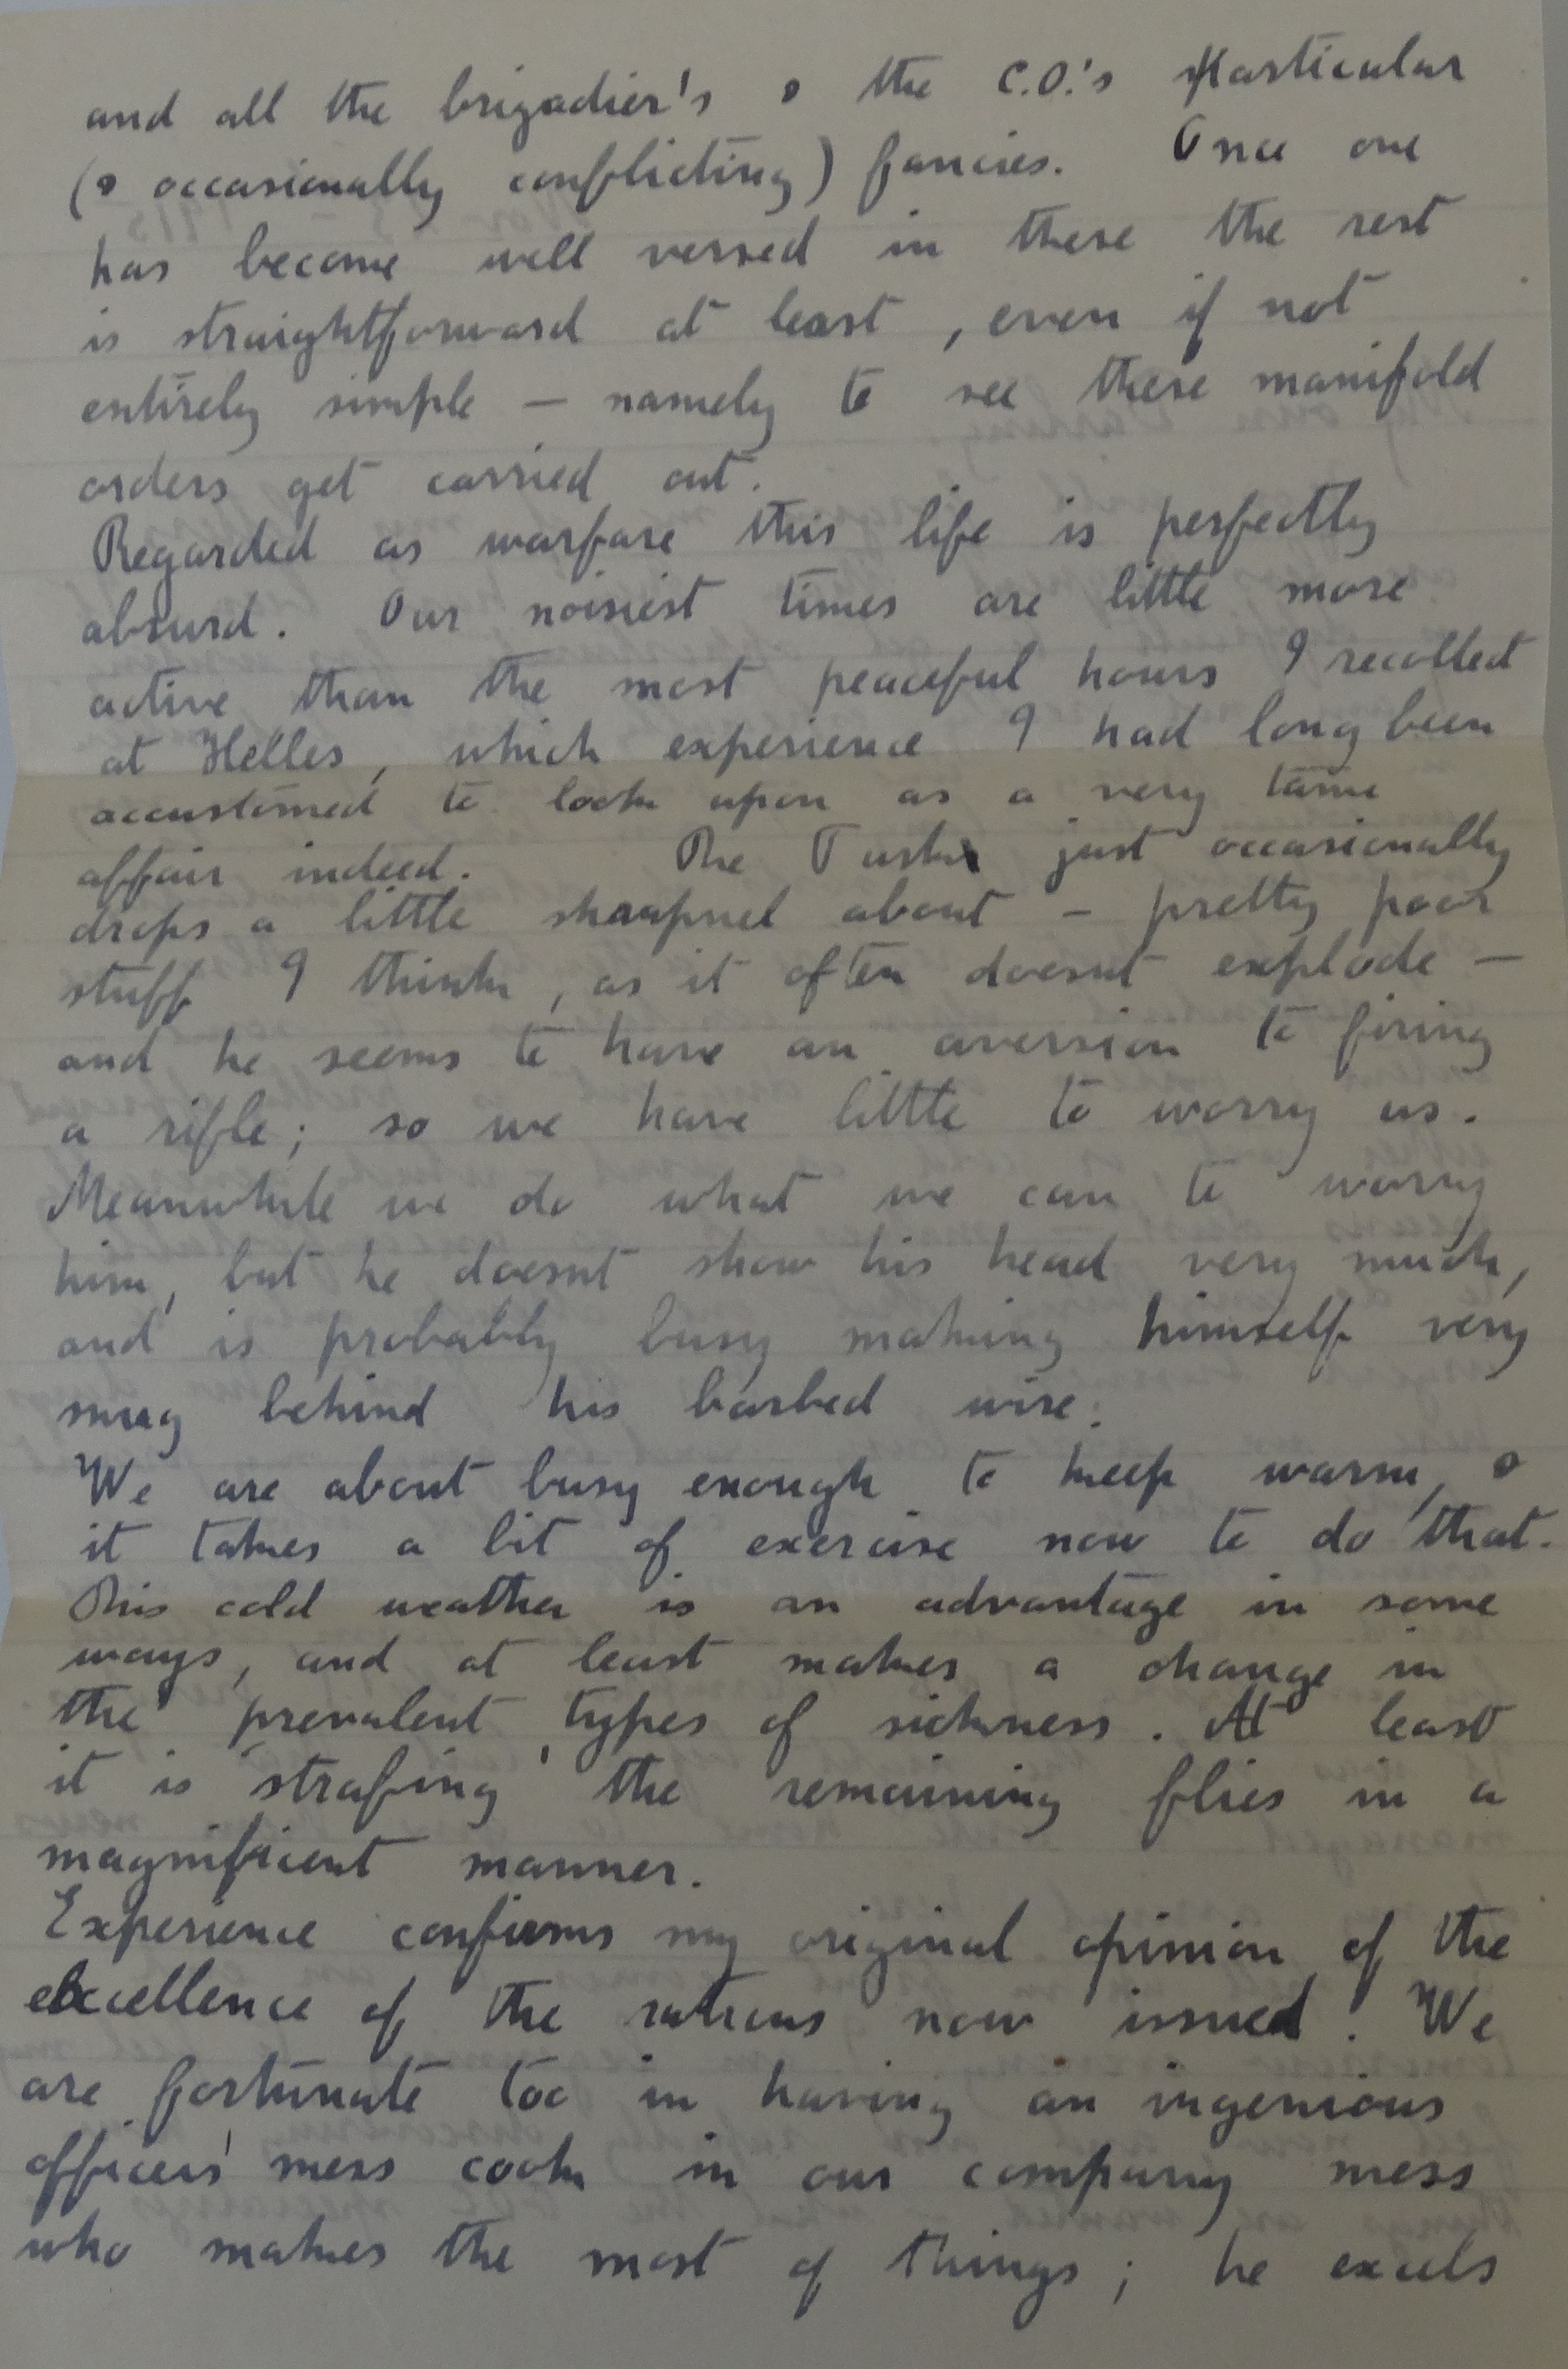 and all the brigadier's & the C.O.'s particular
(& occasionally conflicting) fancies. Once one
has become well versed in these the rest
is straightforward at least, even if not
entirely simple – namely to see these manifold
orders get carried out.
Regarded as warfare this life is perfectly
absurd. Our noisiest times are little more
active than the most peaceful hours I recollect
at Helles, which experience I had long been
accustomed to look upon as a very tame
affair indeed. The Turk just occasionally
drops a little shrapnel about – pretty poor
stuff I think, as it often doesnt explode –
and he seems to have an aversion to firing
a rifle; so we have little to worry us.
Meanwhile we do what we can to worry
him, but he doesnt show his head very much,
and is probably busy making himself very
snug behind his barbed wire.
We are about busy enough to keep warm, &
it takes a bit of exercise now to do that.
This cold weather is an advantage in some
ways, and at least makes a change in
the prevalent types of sickness. At least
it is 'strafing' the remaining flies in a
magnificent manner.
Experience confirms my original opinion of the
excellence of the rations now issued. We
are fortunate too in having an ingenious
officers' mess cook in our company mess
who makes the most of things; he excels